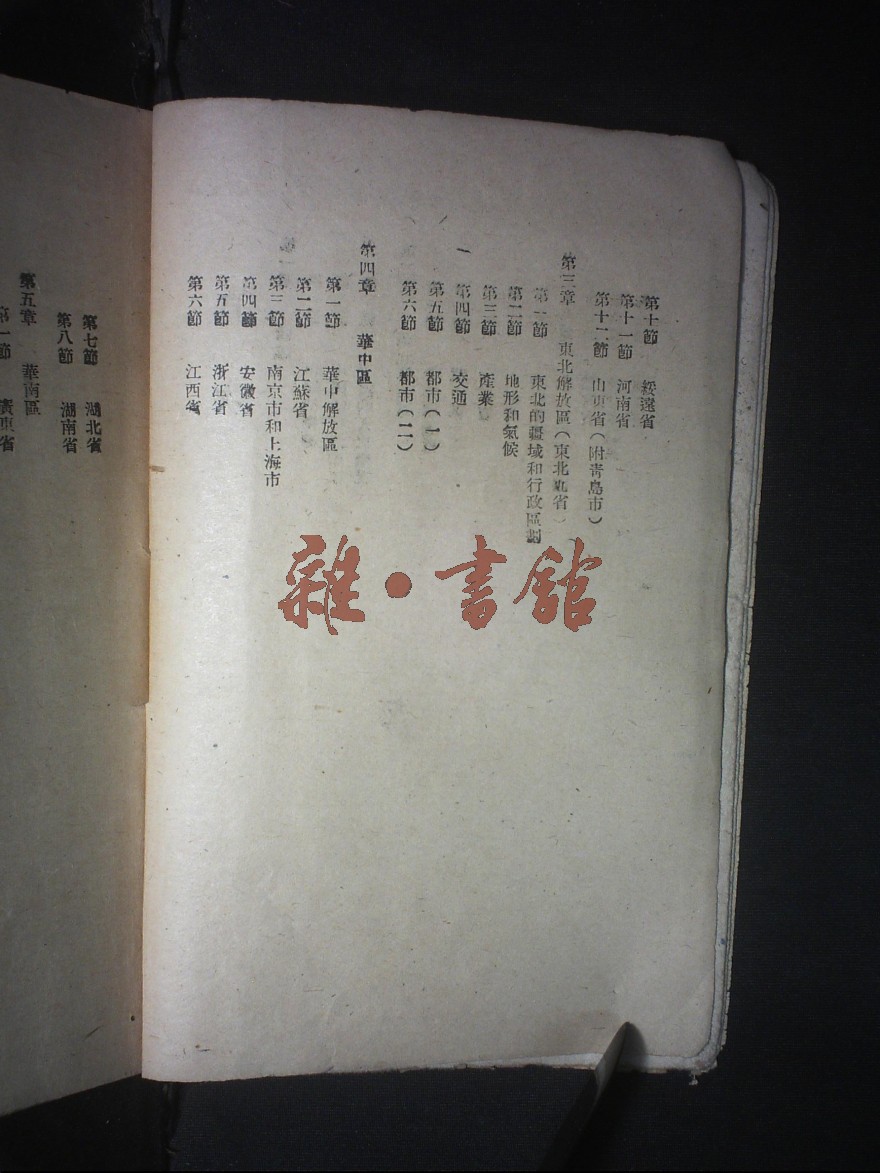 第十節 綏遠省
第十一節 河南省
第十二節 山東省（附青島市）
第三章 東北解放區（東北九省）
第一節 東北的疆域和行政區劃
第二節 地形和氣候
第三節 產業
第四節 交通
第五節 都市（一）
第六節 都市（二）
第四章 華中區
第一節 華中解放區
第二節 江蘇省
第三節 南京市和上海市
第四節 安徽省
第五節 浙江省
第六節 江西省
第七節 湖北省
第八節 湖南省
第五章 華南區
第一節 廣東省
雜·書館